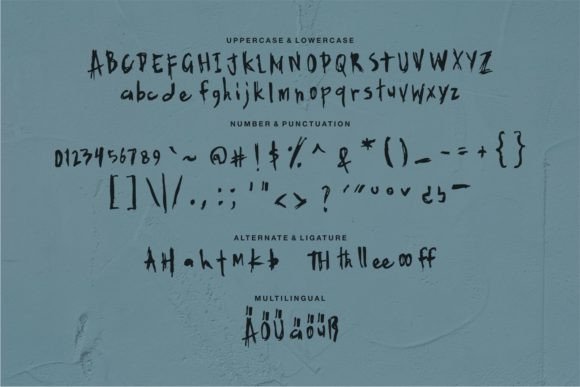 UPPERCASE & LOWERCASE
ABCDEFGHIJKLMNOPQRSTUVWXYZ
abcdefghijklmnopqrstuvwxyz
NUMBER & PUNCTUATION
0123456789 ` ~ @ # ! $ % ^ & * ( ) _ - = + { }
[ ] \ | / . , : ; ' " < > ?
ALTERNATE & LIGATURE
A H a h t M k b TH th ll ee oo ff
MULTILINGUAL
ÄÖÜäöüß